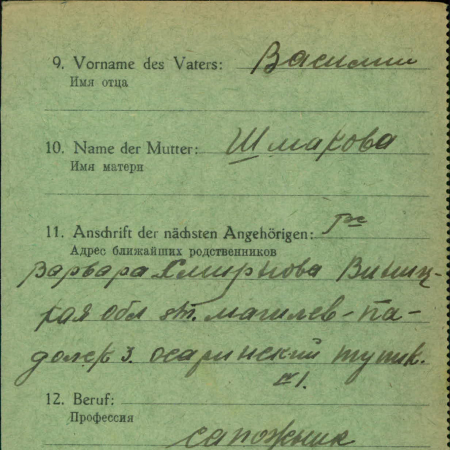 9. Vorname des Vaters: Василий
Имя отца
10. Name der Mutter: Шмакова
Имя матери
11. Anschrift der nächsten Angehörigen:
Адрес ближайших родственников
Варвара Виниц-
кая обл магилев-па-
долск 3. осаринский тупик.
12. Beruf:
Профессия
сапожник